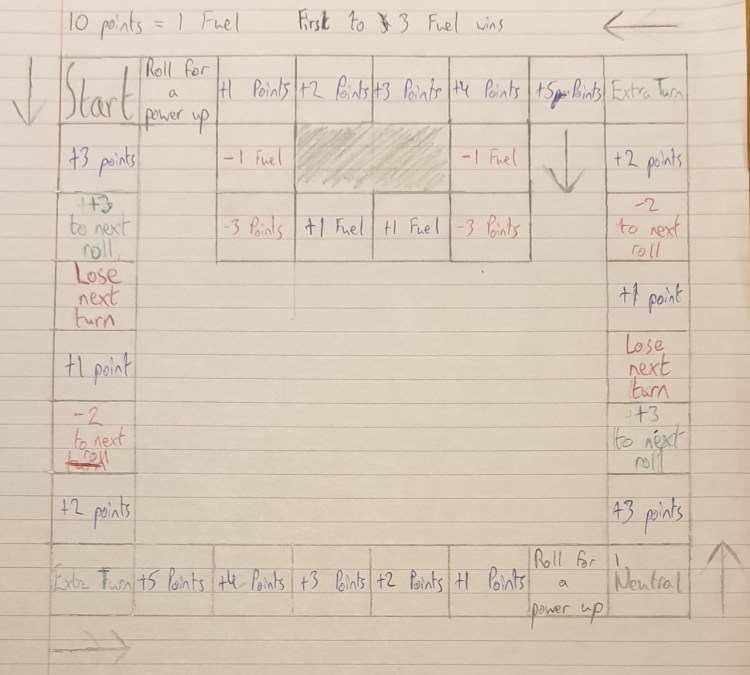 10 points = 1 Fuel First to 3 Fuel wins
Start
Roll for
a
power up
+1 Points
+2 Points
+3 Points
+4 Points
+5 Points
Extra Turn
+3 points
-1 Fuel
-1 Fuel
+2 points
+3
to next
roll
-3 Points
+1 Fuel
+1 Fuel
-3 Points
-2
to next
roll
Lose
next
turn
+1 point
+1 point
Lose
next
turn
-2
to next
roll
+3
to next
roll
+2 points
+3 points
Extra Turn
+5 Points
+4 Points
+3 Points
+2 Points
+1 Points
Roll for
a
power up
Neutral